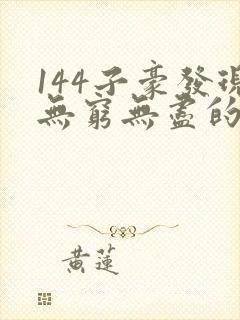 144子豪發現
無窮無盡的
黃蓮